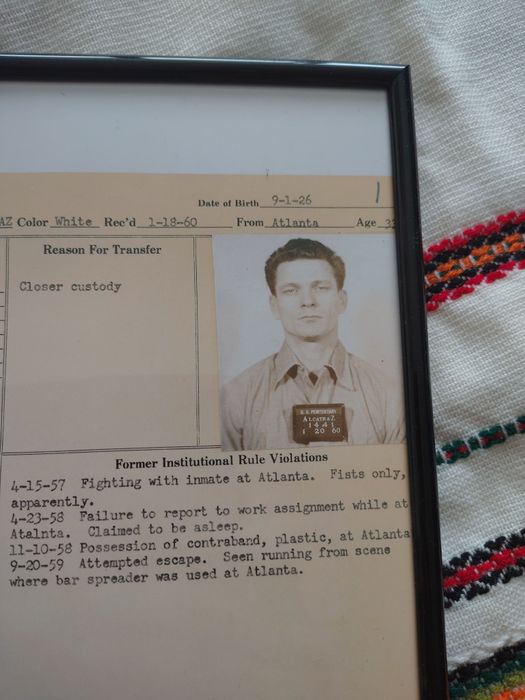 Date of Birth 9-1-26
AZ Color White Rec'd 1-18-60 From Atlanta Age 33
Reason For Transfer
Closer custody
U. S. PENITENTIARY
ALCATRAZ
1441
1 20 60
Former Institutional Rule Violations
4-15-57 Fighting with inmate at Atlanta. Fists only,
apparently.
4-23-58 Failure to report to work assignment while at
Atalnta. Claimed to be asleep.
11-10-58 Possession of contraband, plastic, at Atlanta
9-20-59 Attempted escape. Seen running from scene
where bar spreader was used at Atlanta.